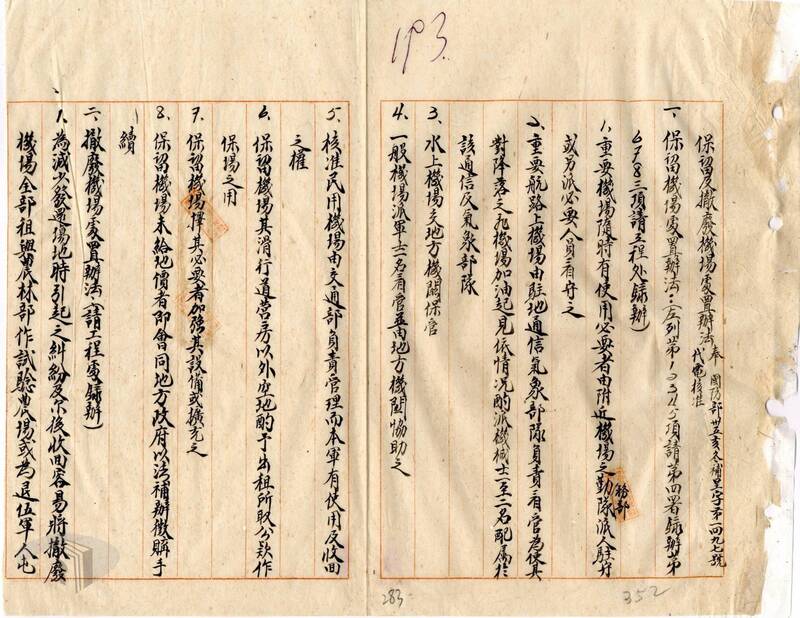 193.
保留及撤廢機場處置辦法奉 國防部卅五亥冬補呈字第一四九七號
代電核准
一、保留機場處置辦法：(左列第1 2 3 4 5項請第四署録辦第
6 7 8三項請工程處録辦)
1、重要機場隨時有使用必要者由附近機場之勤務部隊派人駐守
或另派必要人員看守之
2、重要航路上機場由駐地通信氣象部隊負責看管為使其
對降落之飛機場加油起見依情況酌派機械士一至二名配屬於
該通信及氣象部隊
3、水上機場交地方機關保管
4、一般機場派軍士一名看管並由地方機關協助之
5、核准民用機場由交通部負責管理而本軍有使用及收回
之權
6、保留機場其滑行道营房以外空地酌予出租所取公欵作
保場之用
7、保留機場擇其必要者加强其設備或擴充之
8、保留機場未給地價者即會同地方政府以法補辦徵購手
續
二、撤廢機場處置辦法(請工程處録辦)
1、為減少發還場地時引起之糾紛及尔後收回容易將撤廢
機場全部租與農林部作試驗農場或為退伍軍人屯
283
352